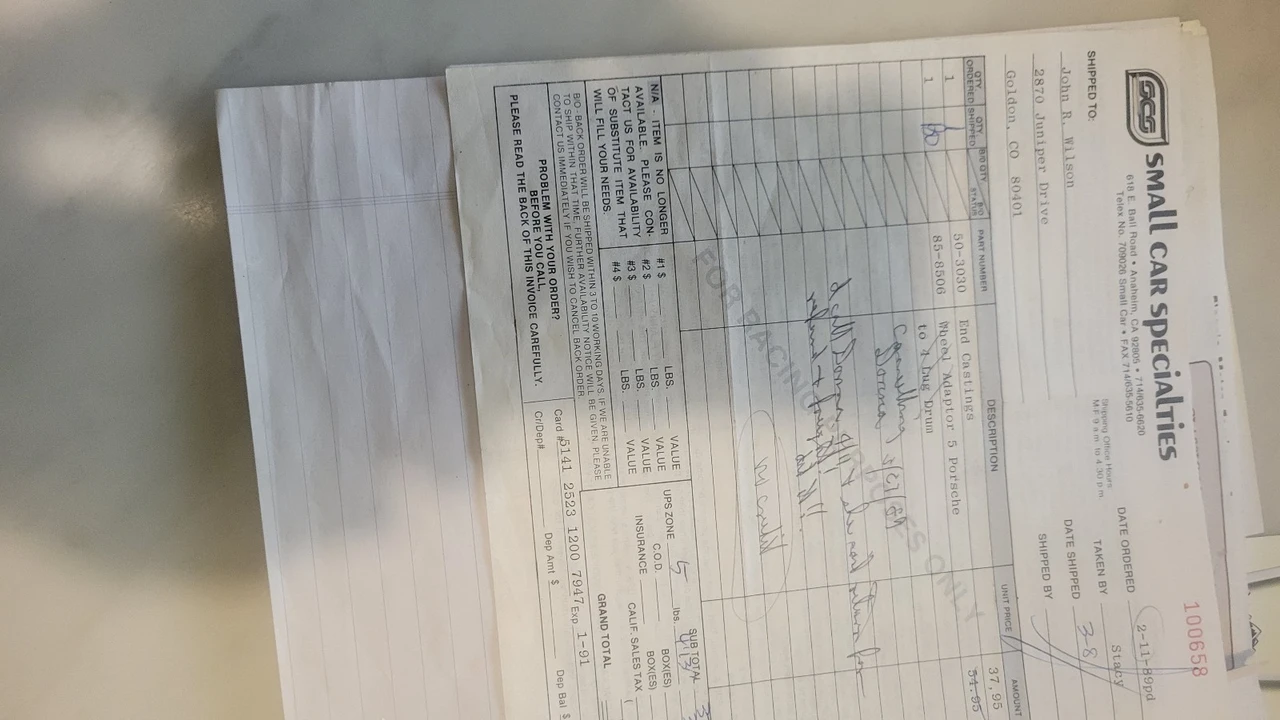 SCS SMALL CAR SPECIALTIES
618 E. Ball Road • Anaheim, CA 92805 • 714/635-6620
Telex No. 709026 Small Car • FAX 714/635-5610
100658
Shipping Office Hours
M-F 9 a.m. to 4:30 p.m.
SHIPPED TO:
John R. Wilson
2870 Juniper Drive
Goldon, CO 80401
DATE ORDERED 2-11-89pd
TAKEN BY Stacy
DATE SHIPPED 3-8
SHIPPED BY
QTY. ORDERED QTY. SHIPPED B/O QTY. B/O STATUS PART NUMBER DESCRIPTION UNIT PRICE AMOUNT
1 50-3030 End Castings 37,95
1 BO 85-8506 Wheel Adaptor 5 Porsche 54.95
to 4 Lug Drum
Donna
refund + freight
FOR RACING PURPOSES ONLY
N/A - ITEM IS NO LONGER
AVAILABLE. PLEASE CON-
TACT US FOR AVAILABILITY
OF SUBSTITUTE ITEM THAT
WILL FILL YOUR NEEDS.
#1 $ LBS. VALUE
#2 $ LBS. VALUE
#3 $ LBS. VALUE
#4 $ LBS.
UPS ZONE 5 lbs.
C.O.D. BOX(ES)
INSURANCE BOX(ES)
SUB TOTAL
CALIF. SALES TAX (
GRAND TOTAL
B/O - BACK ORDER WILL BE SHIPPED WITHIN 3 TO 10 WORKING DAYS. IF WE ARE UNABLE
TO SHIP WITHIN THAT TIME, FURTHER AVAILABILITY NOTICE WILL BE GIVEN. PLEASE
CONTACT US IMMEDIATELY IF YOU WISH TO CANCEL BACK ORDER.
PROBLEM WITH YOUR ORDER?
BEFORE YOU CALL,
PLEASE READ THE BACK OF THIS INVOICE CAREFULLY.
Card # 5141 2523 1200 7947 Exp 1-91
Cr/Dep# Dep Amt $ Dep Bal $